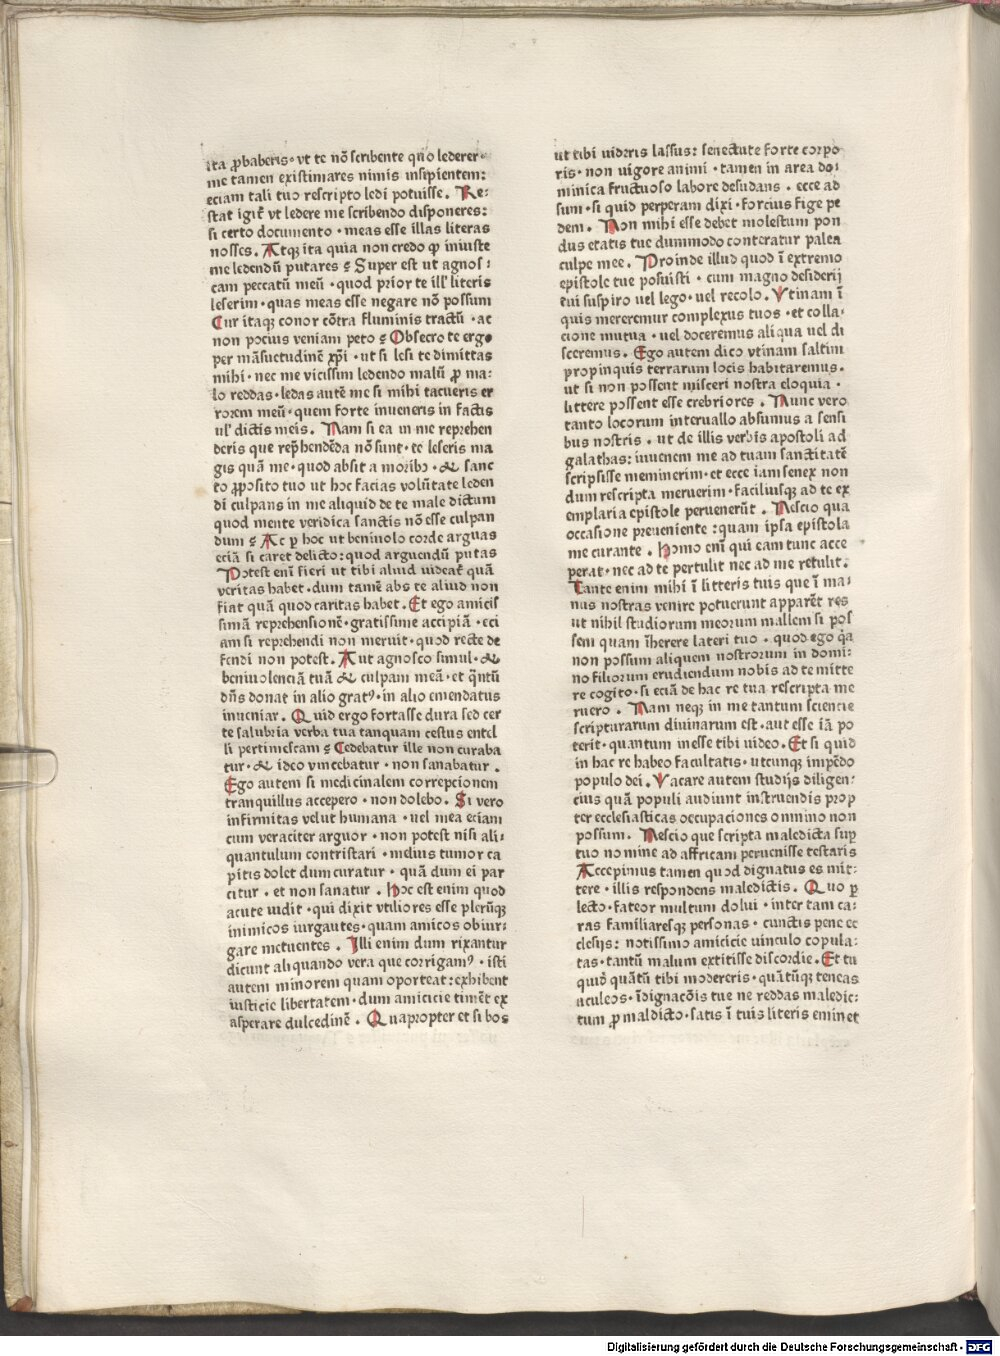 ita ꝓbaberis · vt te nō scribente quo lederer ·
me tamen existimares nimis insipientem:
eciam tali tuo rescripto ledi potuisse . Re⸗
stat igit᷑ vt ledere me scribendo disponeres:
si certo documento · meas esse illas literas
nosses . Atqꝫ ita quia non credo ꝙ iniuste
me ledendū putares ? Super est ut agnos⸗
cam peccatū meū · quod prior te ill' literis
leserim · quas meas esse negare nō possum
Cur itaqꝫ conor cōtra fluminis tractū · ac
non pocius veniam peto ? Obsecro te ergo
per māsuetudinē xp̄i · ut si lesi te dimittas
mihi · nec me vicissim ledendo malū ꝓ ma⸗
lo reddas · ledas autē me si mihi tacueris er
rorem meū · quem forte inueneris in factis
ul' dictis meis . Nam si ea in me reprehen
deris que rep̄hendēda nō sunt · te leseris ma
gis quā me · quod absit a moribꝰ · & sanc
to ꝓposito tuo ut hoc facias volūtate leden
di culpans in me aliquid de te male dictum
quod mente veridica sanctis nō esse culpan
dum ? Ac ꝑ hoc ut beniuolo corde arguas
eciā si caret delicto: quod arguendū putas
Potest enī fieri ut tibi aliud videat᷑ quā
veritas habet · dum tamē abs te aliud non
fiat quā quod caritas habet . Et ego amicis
simā reprehensionē · gratissime accipiā · eci
am si reprehendi non meruit · quod recte de
fendi non potest . Aut agnosco simul · &
beniuolenciā tuā & culpam meā · et q̄ntū
dn̄s donat in alio gratꝰ · in alio emendatus
inueniar . Quid ergo fortasse dura sed cer
te salubria verba tua tanquam cestus entel
li pertimescam ? Cedebatur ille non curaba
tur · & ideo vincebatur · non sanabatur .
Ego autem si medicinalem correpcionem
tranquillus accepero · non dolebo . Si vero
infirmitas velut humana · uel mea eciam
cum veraciter arguor · non potest nisi ali⸗
quantulum contristari · melius tumor ca
pitis dolet dum curatur · quā dum ei par
citur · et non sanatur . Hoc est enim quod
acute uidit · qui dixit vtiliores esse plerūqꝫ
inimicos iurgantes · quam amicos obiur⸗
gare metuentes . Illi enim dum rixantur
dicunt aliquando vera que corrigamꝰ · isti
autem minorem quam oporteat : exhibent
iusticie libertatem · dum amicicie timēt ex
asperare dulcedinē . Quapropter et si bos
ut tibi uideris lassus: senectute forte corpo
ris · non uigore animi · tamen in area do⸗
minica fructuoso labore desudans . ecce ad
sum · si quid perperam dixi · forcius fige pe
dem . Non mihi esse debet molestum pon
dus etatis tue dummodo conteratur palea
culpe mee . Proinde illud quod ī extremo
epistole tue posuisti · cum magno desiderij
tui suspiro uel lego · uel recolo . Vtinam ī
quis mereremur complexus tuos · et colla⸗
cione mutua · uel doceremus aliqua uel di
sceremus . Ego autem dico vtinam saltim
propinquis terrarum locis habitaremus .
ut si non possent misceri nostra eloquia ·
littere possent esse crebriores . Nunc vero
tanto locorum interuallo absumus a sensi
bus nostris . ut de illis verbis apostoli ad
galathas: iuuenem me ad tuam sanctitatē
scripsisse meminerim · et ecce iam senex non
dum rescripta meruerim · faciliusqꝫ ad te ex
emplaria epistole peruenerūt . Nescio qua
occasione preueniente : quam ipsa epistola
me curante . Homo enī qui eam tunc acce
perat · nec ad te pertulit nec ad me retulit .
Tante enim mihi ī litteris tuis que ī ma⸗
nus nostras venire potuerunt apparēt res
ut nihil studiorum meorum mallem si pos̄
sem quam īherere lateri tuo · quod ego q̄a
non possum aliquem nostrorum in domi⸗
no filiorum erudiendum nobis ad te mitte
re cogito · si eciā de hac re tua rescripta me
ruero . Nam neqꝫ in me tantum sciencie
scripturarum diuinarum est · aut esse iā po
terit · quantum inesse tibi uideo . Et si quid
in hac re habeo facultatis · utcunqꝫ impēdo
populo dei . Vacare autem studijs diligen⸗
cius quā populi audiunt instruendis prop
ter ecclesiasticas occupaciones omnino non
possum . Nescio que scripta maledicta suꝑ
tuo nomine ad affricam peruenisse testaris
Accepimus tamen quod dignatus es mit⸗
tere · illis respondens maledictis . Quo ꝑ
lecto · fateor multum dolui · inter tam ca⸗
ras familiaresqꝫ personas · cunctis pene ec
clesijs: notissimo amicicie vinculo copula⸗
tas · tantū malum extitisse discordie . Et tu
quid' quātū tibi modereris · quātūqꝫ teneas
aculeos · īdignacōis tue ne reddas maledic⸗
tum ꝓ maldicto · satis ī tuis literis eminet
Digitalisierung gefördert durch die Deutsche Forschungsgemeinschaft - DFG